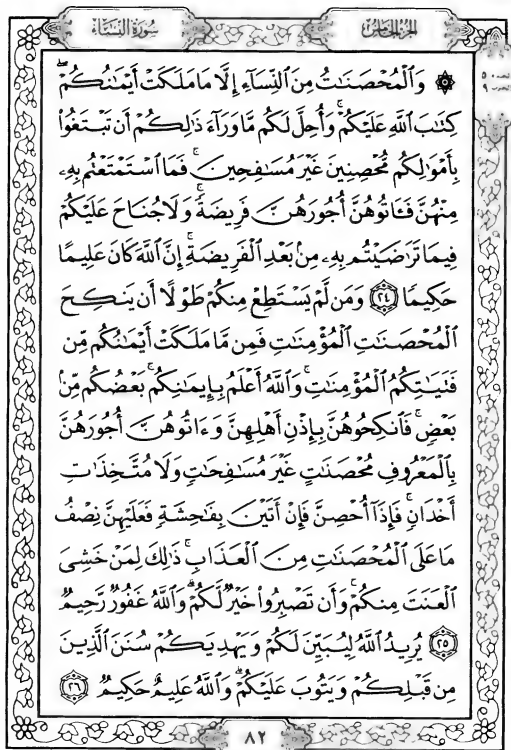 الجزء الخامس
سورة النساء
الجزء ٥
الحزب ٩
۞ وَٱلْمُحْصَنَٰتُ مِنَ ٱلنِّسَآءِ إِلَّا مَا مَلَكَتْ أَيْمَٰنُكُمْۖ
كِتَٰبَ ٱللَّهِ عَلَيْكُمْۚ وَأُحِلَّ لَكُم مَّا وَرَآءَ ذَٰلِكُمْ أَن تَبْتَغُوا۟
بِأَمْوَٰلِكُم مُّحْصِنِينَ غَيْرَ مُسَٰفِحِينَۚ فَمَا ٱسْتَمْتَعْتُم بِهِۦ
مِنْهُنَّ فَـَٔاتُوهُنَّ أُجُورَهُنَّ فَرِيضَةًۚ وَلَا جُنَاحَ عَلَيْكُمْ
فِيمَا تَرَٰضَيْتُم بِهِۦ مِنۢ بَعْدِ ٱلْفَرِيضَةِۚ إِنَّ ٱللَّهَ كَانَ عَلِيمًا
حَكِيمًا ٢٤ وَمَن لَّمْ يَسْتَطِعْ مِنكُمْ طَوْلًا أَن يَنكِحَ
ٱلْمُحْصَنَٰتِ ٱلْمُؤْمِنَٰتِ فَمِن مَّا مَلَكَتْ أَيْمَٰنُكُم مِّن
فَتَيَٰتِكُمُ ٱلْمُؤْمِنَٰتِۚ وَٱللَّهُ أَعْلَمُ بِإِيمَٰنِكُمۚ بَعْضُكُم مِّنۢ
بَعْضٍۚ فَٱنكِحُوهُنَّ بِإِذْنِ أَهْلِهِنَّ وَءَاتُوهُنَّ أُجُورَهُنَّ
بِٱلْمَعْرُوفِ مُحْصَنَٰتٍ غَيْرَ مُسَٰفِحَٰتٍ وَلَا مُتَّخِذَٰتِ
أَخْدَانٍۚ فَإِذَآ أُحْصِنَّ فَإِنْ أَتَيْنَ بِفَٰحِشَةٍ فَعَلَيْهِنَّ نِصْفُ
مَا عَلَى ٱلْمُحْصَنَٰتِ مِنَ ٱلْعَذَابِۚ ذَٰلِكَ لِمَنْ خَشِىَ
ٱلْعَنَتَ مِنكُمْۚ وَأَن تَصْبِرُوا۟ خَيْرٌ لَّكُمْۗ وَٱللَّهُ غَفُورٌ رَّحِيمٌ
٢٥ يُرِيدُ ٱللَّهُ لِيُبَيِّنَ لَكُمْ وَيَهْدِيَكُمْ سُنَنَ ٱلَّذِينَ
مِن قَبْلِكُمْ وَيَتُوبَ عَلَيْكُمْۗ وَٱللَّهُ عَلِيمٌ حَكِيمٌ ٢٦
٨٢